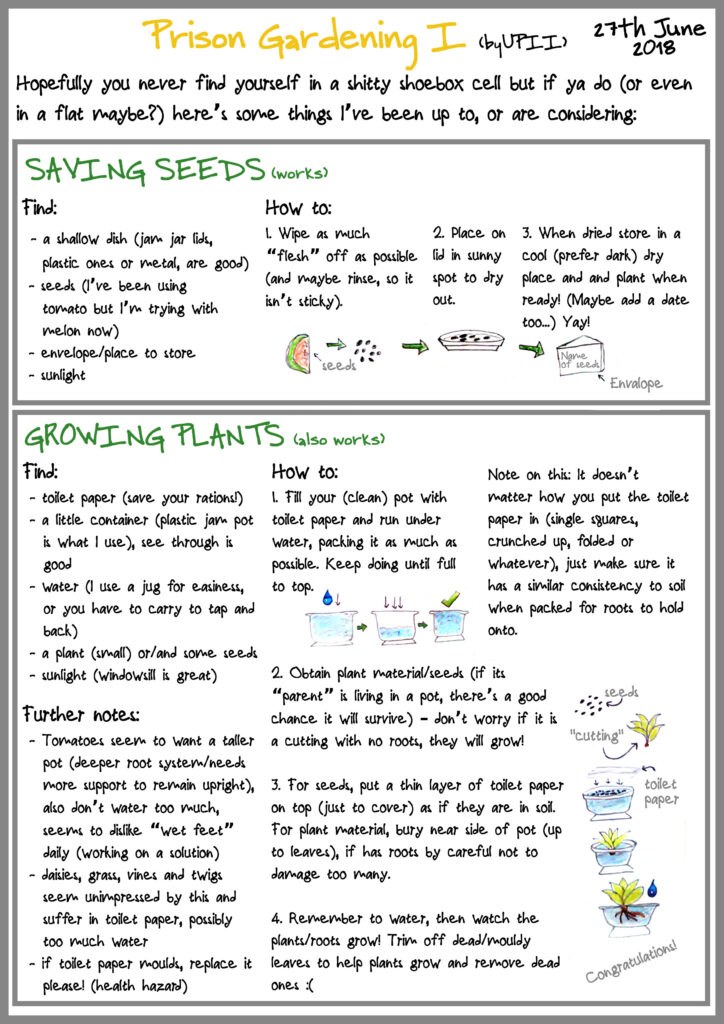 Prison Gardening I (by UPII)
27th June
2018
Hopefully you never find yourself in a shitty shoebox cell but if ya do (or even
in a flat maybe?) here's some things I've been up to, or are considering:
SAVING SEEDS (works)
Find:
- a shallow dish (jam jar lids,
plastic ones or metal, are good)
- seeds (I've been using
tomato but I'm trying with
melon now)
- envelope/place to store
- sunlight
How to:
1. Wipe as much
"flesh" off as possible
(and maybe rinse, so it
isn't sticky).
2. Place on
lid in sunny
spot to dry
out.
3. When dried store in a
cool (prefer dark) dry
place and and plant when
ready! (Maybe add a date
too...) Yay!
seeds
Name
of seeds
Envalope
GROWING PLANTS (also works)
Find:
- toilet paper (save your rations!)
- a little container (plastic jam pot
is what I use), see through is
good
- water (I use a jug for easiness,
or you have to carry to tap and
back)
- a plant (small) or/and some seeds
- sunlight (windowsill is great)
Further notes:
- Tomatoes seem to want a taller
pot (deeper root system/needs
more support to remain upright),
also don't water too much,
seems to dislike "wet feet"
daily (working on a solution)
- daisies, grass, vines and twigs
seem unimpressed by this and
suffer in toilet paper, possibly
too much water
- if toilet paper moulds, replace it
please! (health hazard)
How to:
1. Fill your (clean) pot with
toilet paper and run under
water, packing it as much as
possible. Keep doing until full
to top.
Note on this: It doesn't
matter how you put the toilet
paper in (single squares,
crunched up, folded or
whatever), just make sure it
has a similar consistency to soil
when packed for roots to hold
onto.
2. Obtain plant material/seeds (if its
"parent" is living in a pot, there's a good
chance it will survive) - don't worry if it is
a cutting with no roots, they will grow!
3. For seeds, put a thin layer of toilet paper
on top (just to cover) as if they are in soil.
For plant material, bury near side of pot (up
to leaves), if has roots by careful not to
damage too many.
4. Remember to water, then watch the
plants/roots grow! Trim off dead/mouldy
leaves to help plants grow and remove dead
ones :(
seeds
"cutting"
toilet
paper
Congratulations!